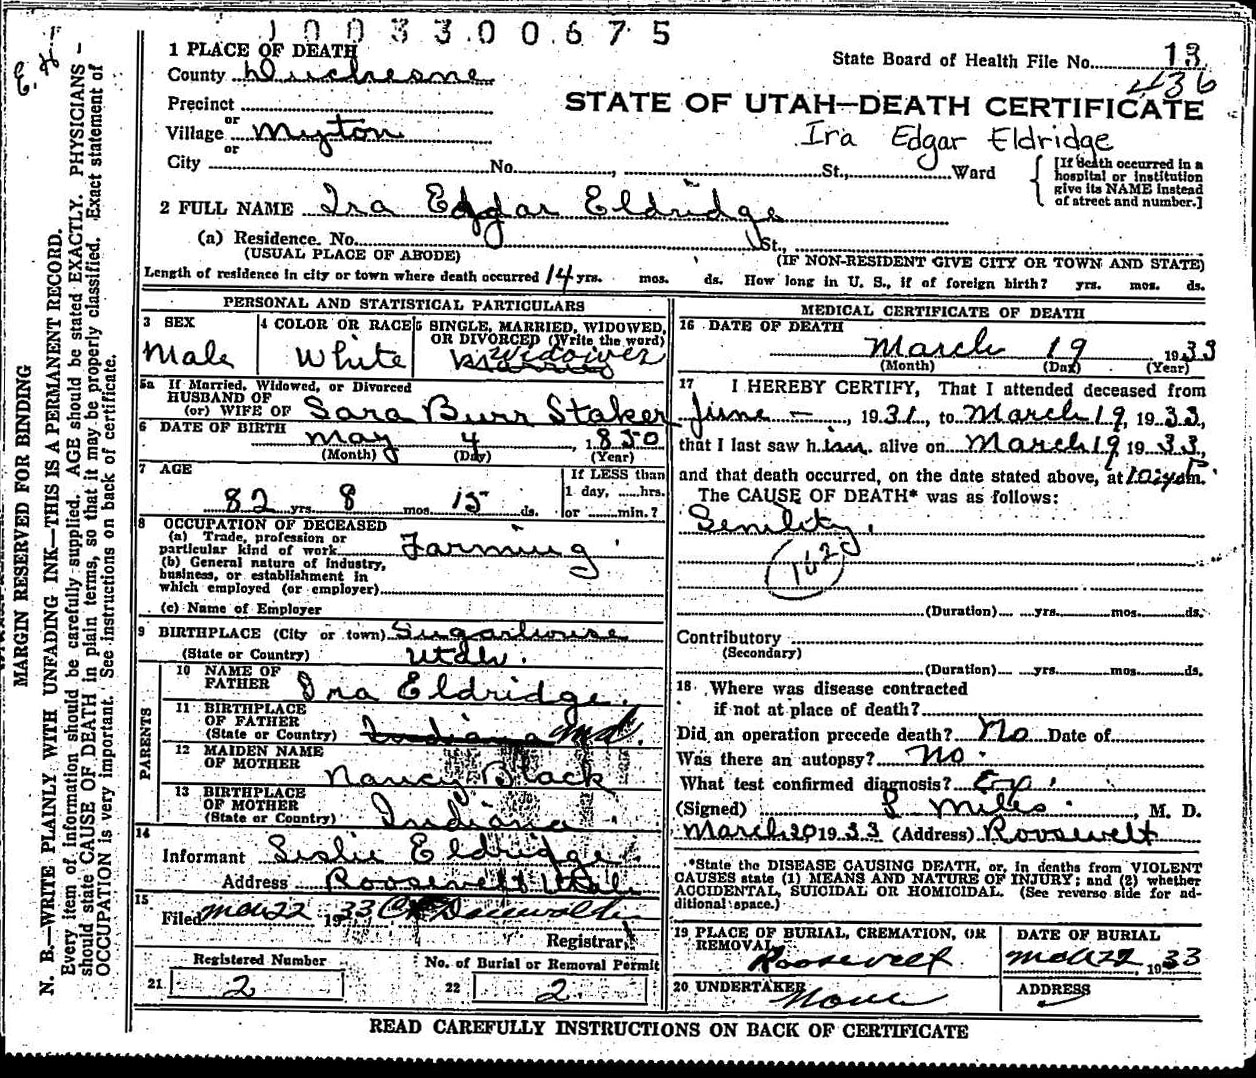 1003300675
1 PLACE OF DEATH
State Board of Health File No. 13
436
County Duchesne
STATE OF UTAH—DEATH CERTIFICATE
Precinct
or
Village Myton
Ira Edgar Eldridge
or
City No. , St., Ward
[If death occurred in a
hospital or institution
give its NAME instead
of street and number.]
2 FULL NAME Ira Edgar Eldridge
(a) Residence. No. St.,
(USUAL PLACE OF ABODE) (IF NON-RESIDENT GIVE CITY OR TOWN AND STATE)
Length of residence in city or town where death occurred 14 yrs. mos. ds. How long in U. S., if of foreign birth? yrs. mos. ds.
PERSONAL AND STATISTICAL PARTICULARS
3 SEX
Male
4 COLOR OR RACE
White
5 SINGLE, MARRIED, WIDOWED,
OR DIVORCED (Write the word)
Widower
5a If Married, Widowed, or Divorced
HUSBAND OF
(or) WIFE OF Sara Burr Staker
6 DATE OF BIRTH May 4, 1850
(Month) (Day) (Year)
7 AGE
82 yrs. 8 mos. 15 ds.
If LESS than
1 day, hrs.
or min.?
8 OCCUPATION OF DECEASED
(a) Trade, profession or
particular kind of work Farming
(b) General nature of Industry,
business, or establishment in
which employed (or employer)
(c) Name of Employer
9 BIRTHPLACE (City or town) Sugarhouse
(State or Country) Utah.
PARENTS
10 NAME OF
FATHER Ira Eldridge.
11 BIRTHPLACE
OF FATHER
(State or Country) Indiana Ind.
12 MAIDEN NAME
OF MOTHER Nancy Black
13 BIRTHPLACE
OF MOTHER
(State or Country) Indiana
14
Informant Leslie Eldridge
Address Roosevelt Utah
15
Filed Mar 22 1933
Registrar
Registered Number
21 2
No. of Burial or Removal Permit
22 2
MEDICAL CERTIFICATE OF DEATH
16 DATE OF DEATH
March 19 1933
(Month) (Day) (Year)
17 I HEREBY CERTIFY, That I attended deceased from
June - , 1931, to March 19, 1933,
that I last saw him alive on March 19 1933,
and that death occurred, on the date stated above, at m.
The CAUSE OF DEATH* was as follows:
Senility.
162
(Duration) yrs. mos. ds.
Contributory
(Secondary)
(Duration) yrs. mos. ds.
18 Where was disease contracted
if not at place of death?
Did an operation precede death? No Date of
Was there an autopsy? No.
What test confirmed diagnosis?
(Signed) L Miles. M. D.
March 20, 1933 (Address) Roosevelt
*State the DISEASE CAUSING DEATH, or, in deaths from VIOLENT
CAUSES state (1) MEANS AND NATURE OF INJURY; and (2) whether
ACCIDENTAL, SUICIDAL OR HOMICIDAL. (See reverse side for ad-
ditional space.)
19 PLACE OF BURIAL, CREMATION, OR
REMOVAL
Roosevelt
DATE OF BURIAL
Mar 22, 1933
20 UNDERTAKER None
ADDRESS
READ CAREFULLY INSTRUCTIONS ON BACK OF CERTIFICATE
MARGIN RESERVED FOR BINDING
N. B.—WRITE PLAINLY WITH UNFADING INK—THIS IS A PERMANENT RECORD.
Every item of information should be carefully supplied. AGE should be stated EXACTLY. PHYSICIANS
should state CAUSE OF DEATH in plain terms, so that it may be properly classified. Exact statement of
OCCUPATION is very important. See instructions on back of certificate.